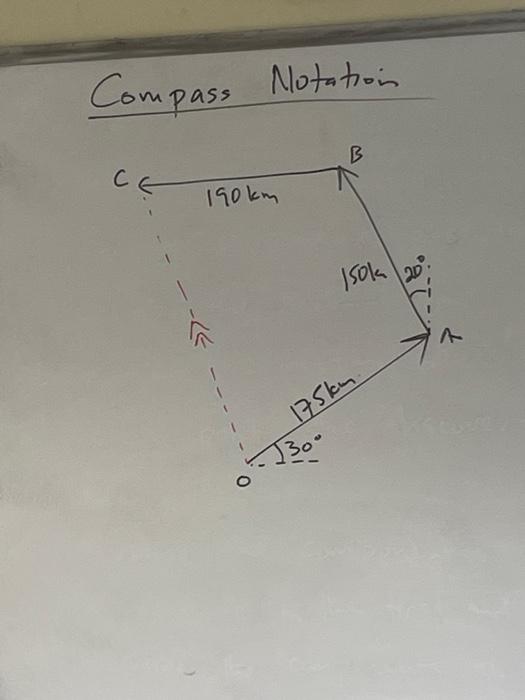 Compass Notation
B
C
190km
150k
20°
A
175km
30°
O